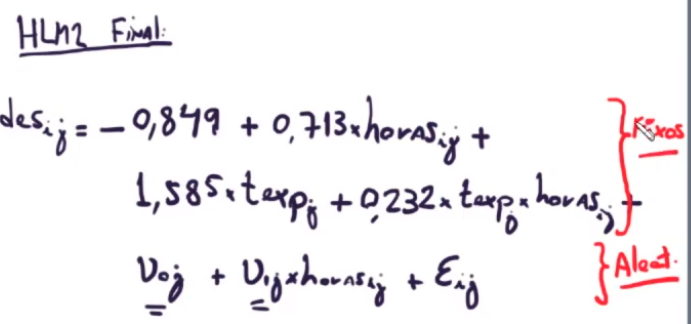 HLM2 Final:
des_ij = - 0,849 + 0,713 x horas_ij +
Fixos
1,585 x texp_j + 0,232 x texp_j x horas_ij +
υ_0j + υ_1j x horas_ij + ε_ij
Aleat.